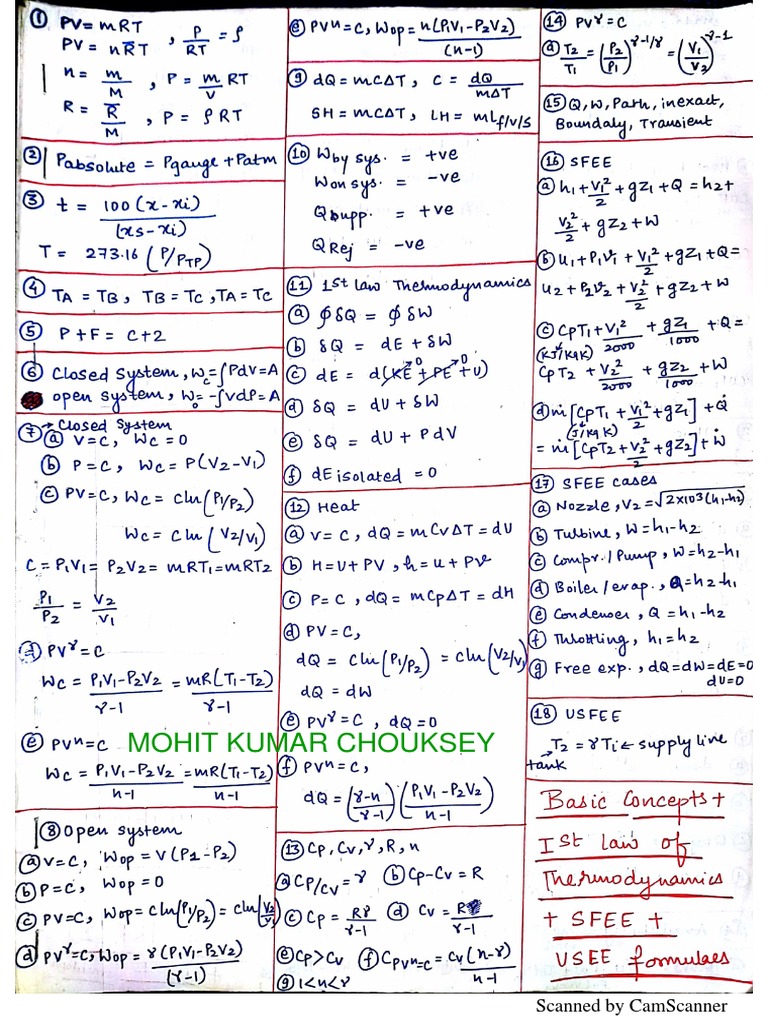 ① PV = mRT
PV = nR̄T , P/RT = ρ
n = m/M , P = m/V RT
R = R̄/M , P = ρRT
② Pabsolute = Pgauge + Patm
③ t = 100(x-xi)/(xs-xi)
T = 273.16 (P/PTP)
④ TA = TB, TB = TC, TA = TC
⑤ P + F = C + 2
⑥ Closed System, Wc = ∫PdV = A
open System, Wo = -∫VdP = A
⑦ → Closed System
ⓐ V=C, Wc = 0
ⓑ P=C, Wc = P(V2-V1)
ⓒ PV=C, Wc = Cln(P1/P2)
Wc = Cln(V2/V1)
C = P1V1 = P2V2 = mRT1 = mRT2
P1/P2 = V2/V1
ⓓ PVᵞ=C
Wc = P1V1-P2V2/γ-1 = mR(T1-T2)/γ-1
ⓔ PVⁿ=C
Wc = P1V1-P2V2/n-1 = mR(T1-T2)/n-1
⑧ Open system
ⓐ V=C, Wop = V(P1-P2)
ⓑ P=C, Wop = 0
ⓒ PV=C, Wop = Cln(P1/P2) = Cln(V2/V1)
ⓓ PVᵞ=C, Wop = γ(P1V1-P2V2)/(γ-1)
ⓔ PVⁿ=C, Wop = n(P1V1-P2V2)/(n-1)
⑨ dQ = mCΔT, C = dQ/mΔT
SH = mCΔT, LH = mLf/v/s
⑩ Wby sys. = +ve
Won sys. = -ve
Qsupp. = +ve
QRej = -ve
⑪ 1st law Thermodynamics
ⓐ ∮δQ = ∮δW
ⓑ δQ = dE + δW
ⓒ dE = d(KE⁰ + PE⁰ + U)
ⓓ δQ = dU + δW
ⓔ δQ = dU + PdV
ⓕ dE isolated = 0
⑫ Heat
ⓐ V=C, dQ = mCvΔT = dU
ⓑ H=U+PV, h = u + Pv
ⓒ P=C, dQ = mCpΔT = dH
ⓓ PV=C,
dQ = Cln(P1/P2) = Cln(V2/V1)
dQ = dW
ⓔ PVᵞ=C, dQ=0
ⓕ PVⁿ=C,
dQ = (γ-n/γ-1)(P1V1-P2V2/n-1)
⑬ Cp, Cv, γ, R, n
ⓐ Cp/Cv = γ ⓑ Cp-Cv = R
ⓒ Cp = Rγ/γ-1 ⓓ Cv = R/γ-1
ⓔ Cp>Cv ⓕ CPVⁿ=C = Cv(n-γ)/n-1
ⓖ 1<n<γ
⑭ PVᵞ=C
ⓐ T2/T1 = (P2/P1)^γ-1/γ = (V1/V2)^γ-1
⑮ Q, W, Path, inexact,
Boundaly, Transient
⑯ SFEE
ⓐ h1 + V1²/2 + gZ1 + Q = h2 +
V2²/2 + gZ2 + W
ⓑ u1 + P1v1 + V1²/2 + gZ1 + Q =
u2 + P2v2 + V2²/2 + gZ2 + W
ⓒ CpT1 + V1²/2000 + gZ1/1000 + Q =
(KJ/KgK)
CpT2 + V2²/2000 + gZ2/1000 + W
ⓓ ṁ[CpT1 + V1²/2 + gZ1] + Q̇
(J/KgK)
= ṁ[CpT2 + V2²/2 + gZ2] + Ẇ
⑰ SFEE cases
ⓐ Nozzle, V2 = √2x10³(h1-h2)
ⓑ Turbine, W = h1-h2
ⓒ Compr./Pump, W = h2-h1
ⓓ Boiler/evap., Q = h2-h1
ⓔ Condenser, Q = h1-h2
ⓕ Throttling, h1 = h2
ⓖ Free exp., dQ=dW=dE=0
dU=0
⑱ USFEE
T2 = γTi ← supply line
tank
Basic Concepts +
Ist law of
Thermodynamics
+ SFEE +
USEE formulaes
MOHIT KUMAR CHOUKSEY
Scanned by CamScanner